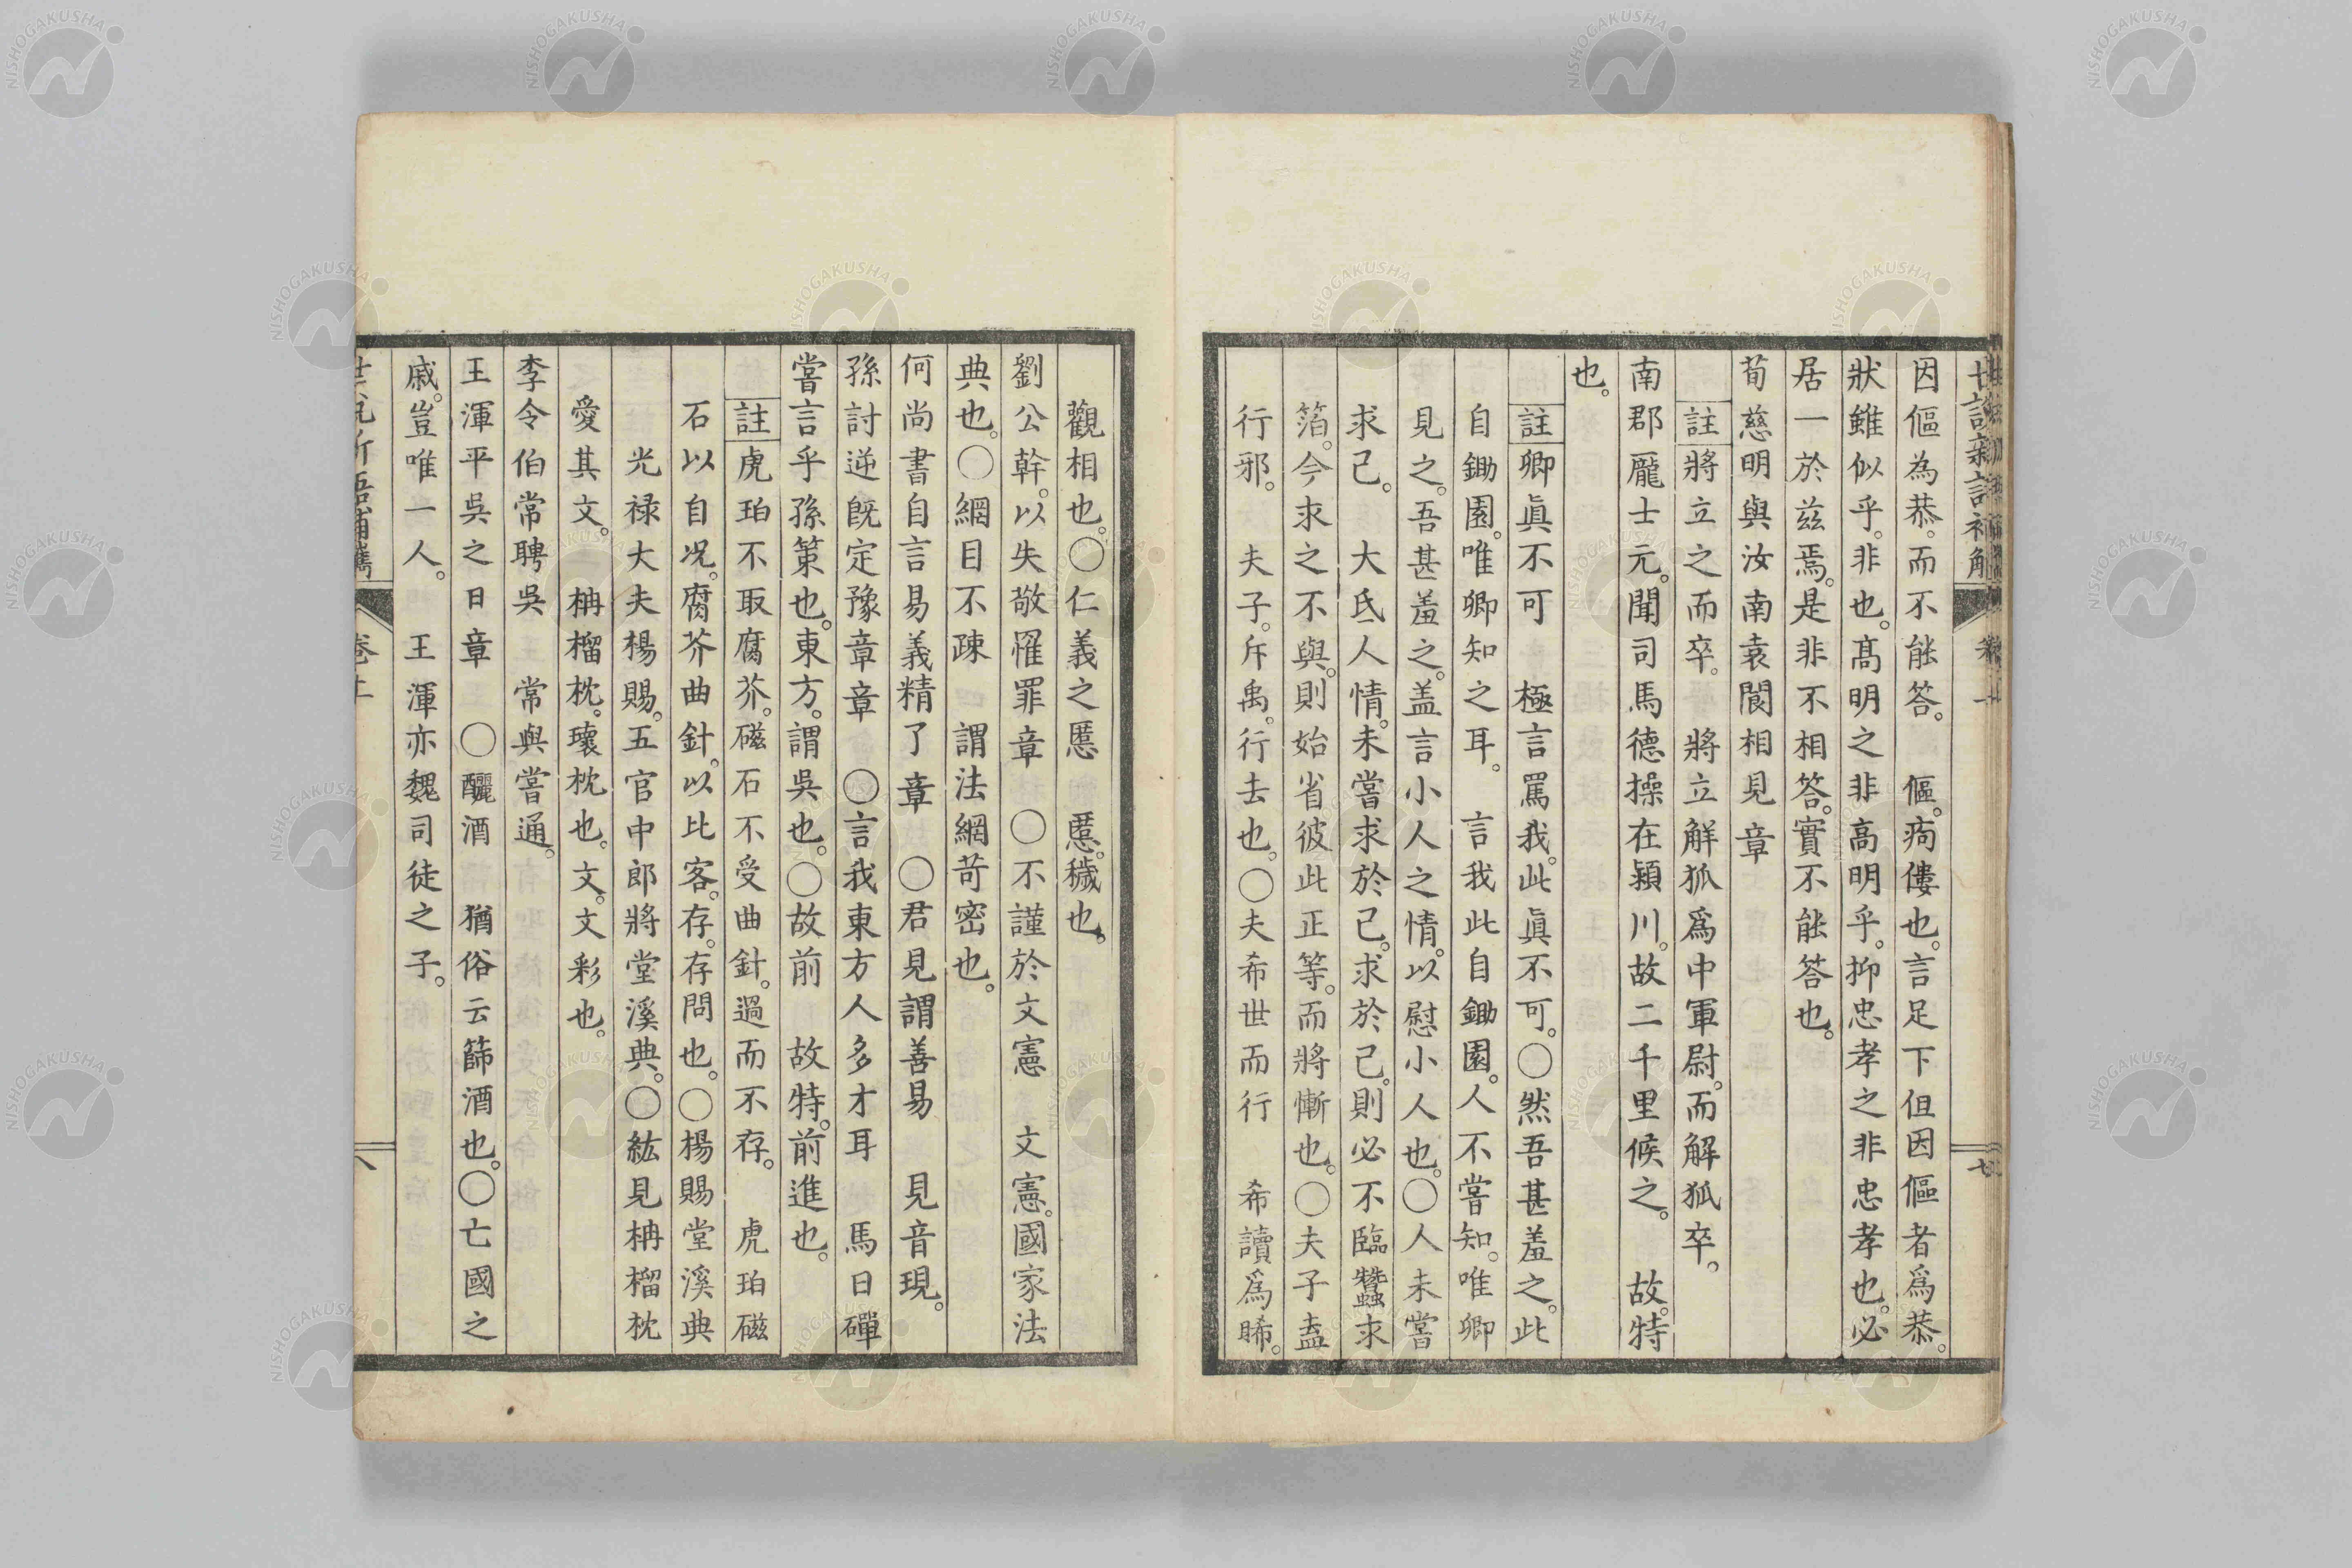 因傴為恭。而不能答。 傴。痀僂也。言足下但因傴者爲恭。
狀雖似乎。非也。髙明之非高明乎。抑忠孝之非忠孝也。必
居一於兹焉。是非不相答。實不能答也。
荀慈明與汝南袁閬相見章
註將立之而卒。 將立解狐爲中軍尉。而解狐卒。
南郡龐士元。聞司馬德操在潁川。故二千里候之。 故。特
也。
註卿眞不可 極言罵我。此眞不可。○然吾甚羞之。此
自鋤園。唯卿知之耳。 言我此自鋤園。人不嘗知。唯卿
見之。吾甚羞之。盖言小人之情。以慰小人也。○人未嘗
求己。 大氐人情。未嘗求於己。求於己。則必不臨蠶求
箔。今求之不與。則始省彼此正等。而將慚也。○夫子盍
行邪。 夫子。斥禹。行去也。○夫希世而行 希讀爲睎。
觀相也。○仁義之慝 慝。穢也。
劉公幹。以失敬罹罪章 ○不謹於文憲 文憲。國家法
典也。○網目不疎 謂法網苛密也。
何尚書自言易義精了章 ○君見謂善易 見音現。
孫討逆既定豫章章 ○言我東方人多才耳 馬日磾
嘗言乎孫策也。東方。謂吳也。○故前 故特。前進也。
註虎珀不取腐芥。磁石不受曲針。過而不存。 虎珀磁
石以自况。腐芥曲針。以比客。存。存問也。○楊賜堂溪典
光禄大夫楊賜。五官中郎將堂溪典。○紘見柟榴枕
愛其文。 柟榴枕。瓌枕也。文。文彩也。
李令伯常聘吳 常與嘗通。
王渾平吳之日章 ○釃酒 猶俗云篩酒也。○亡國之
戚。豈唯一人。 王渾亦魏司徒之子。